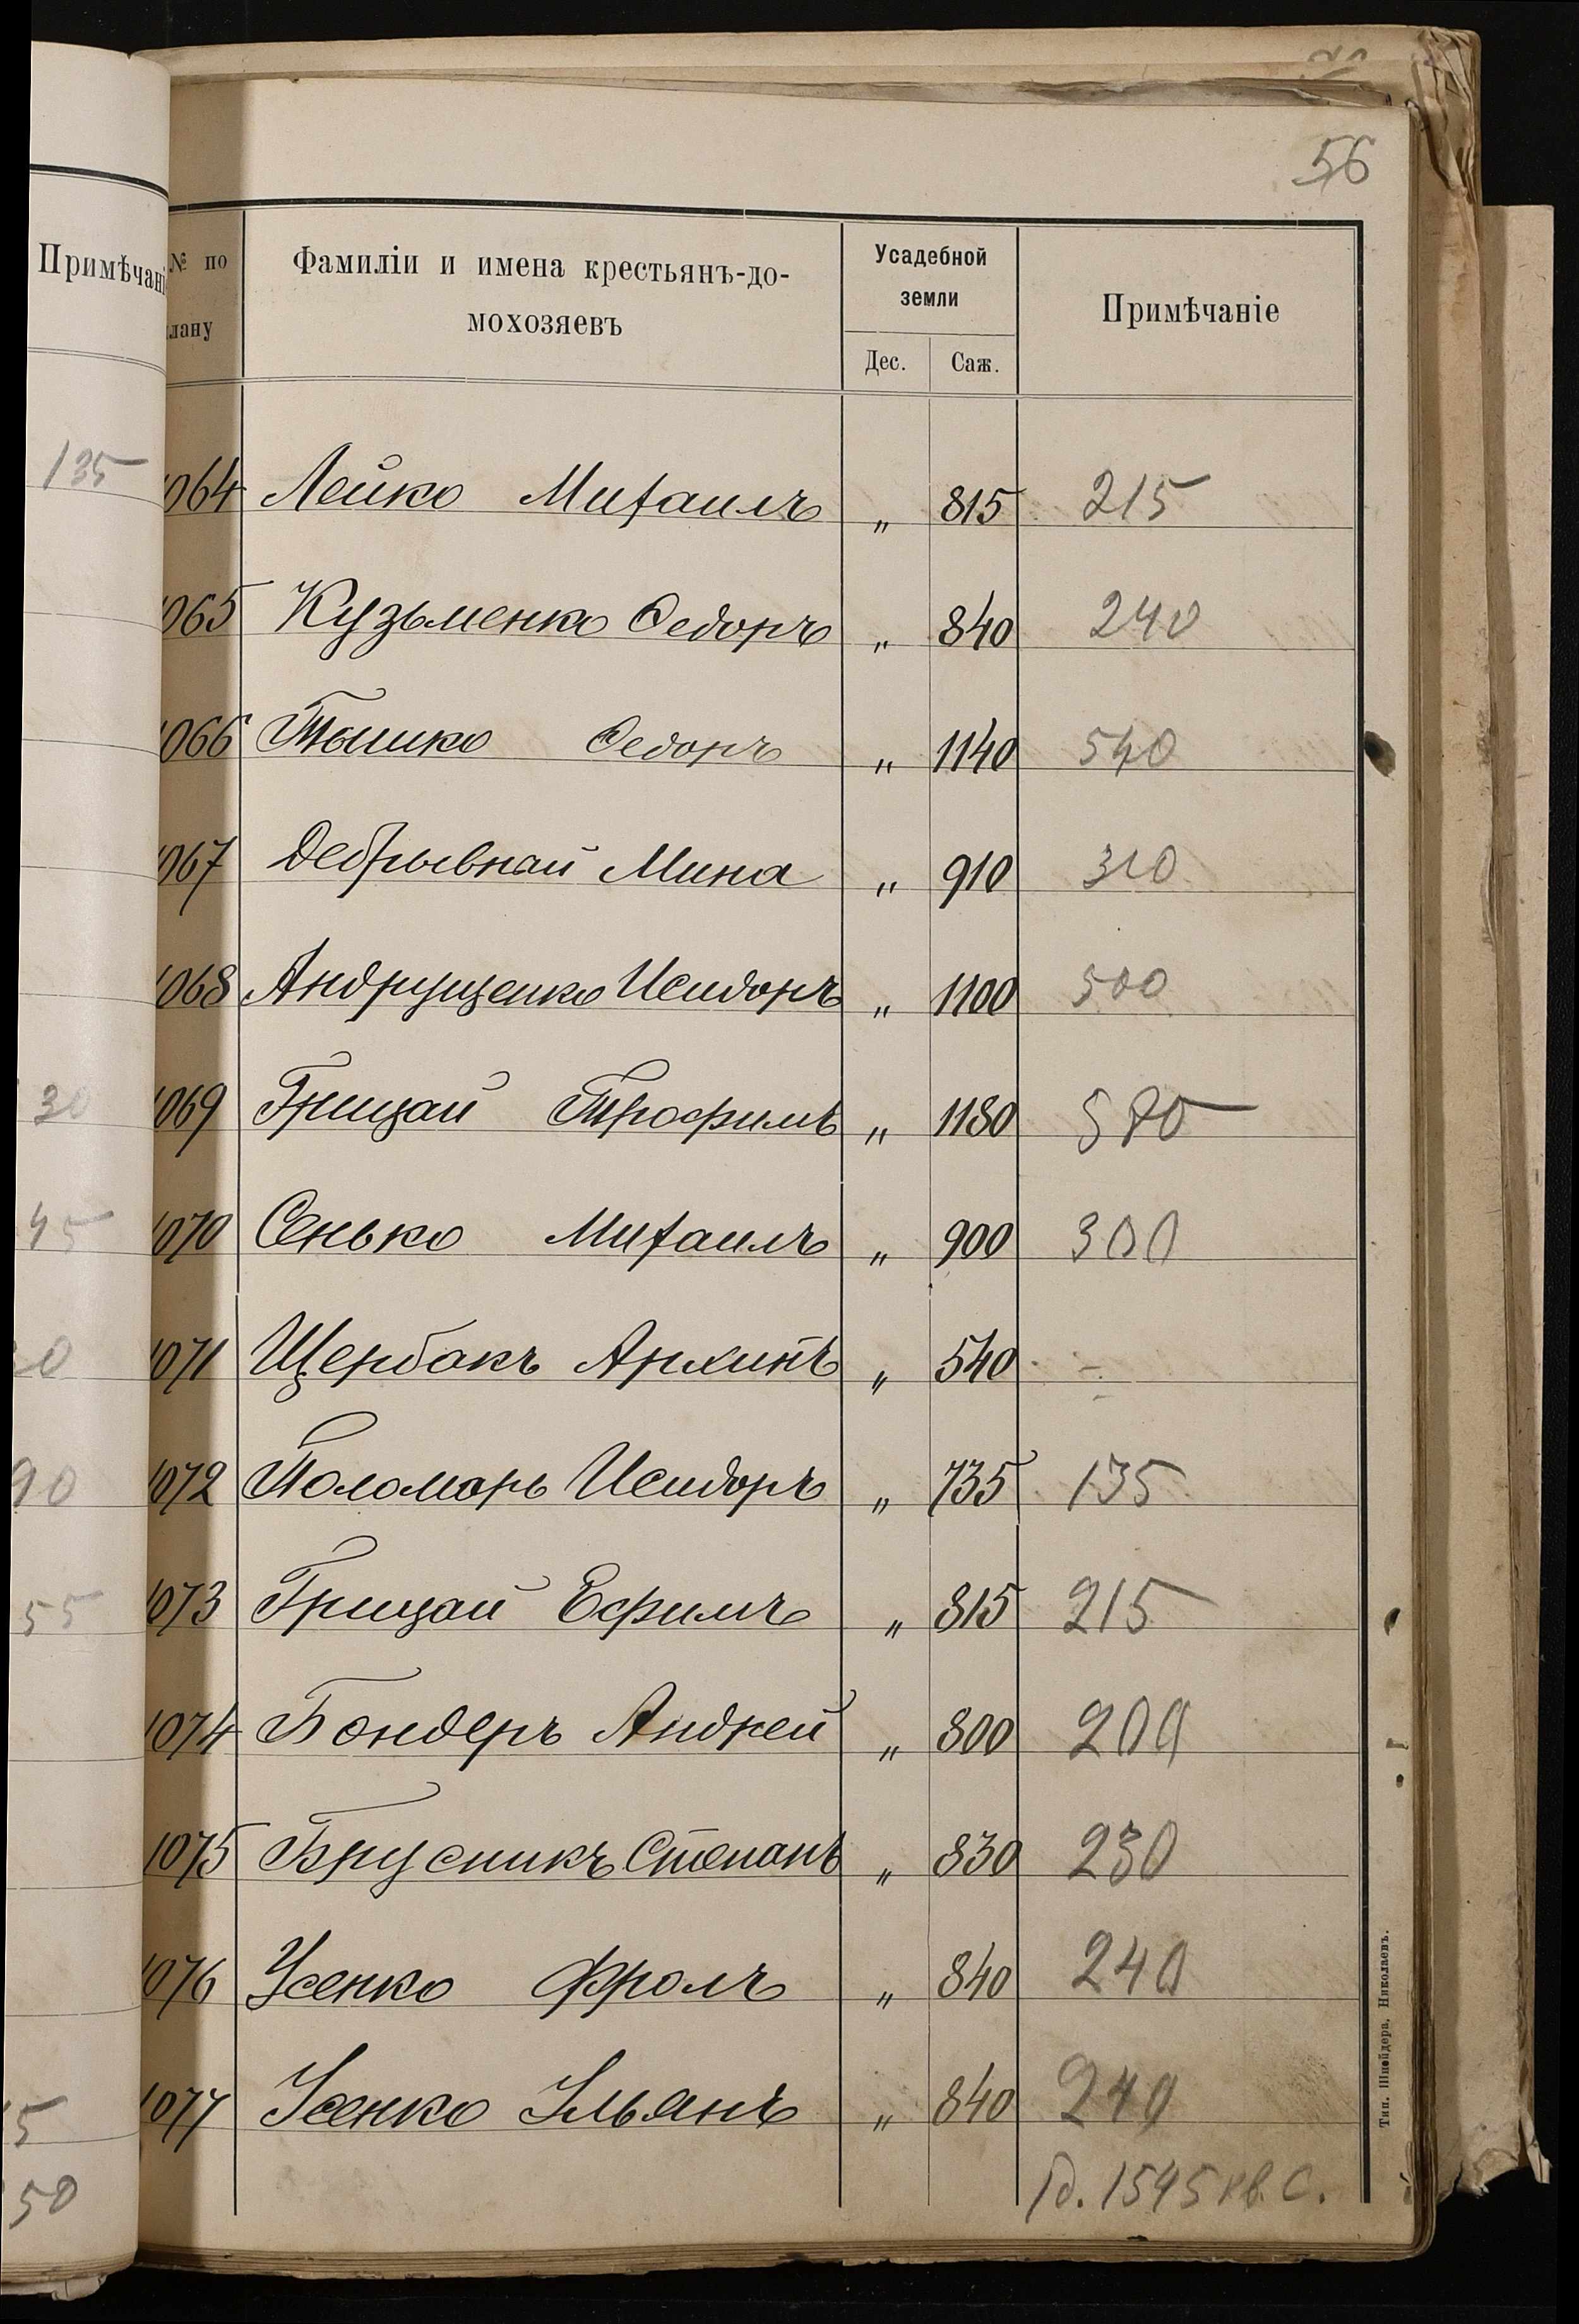 56
Примѣчані
135
30
45
90
55
5
50
№ по
лану
Фамиліи и имена крестьянъ-до-
мохозяевъ
Усадебной
земли
Дес. Саж.
Примѣчаніе
1064 Лейко Михаилъ „ 815 215
1065 Кузьменко Ѳедоръ „ 840 240
1066 Тышко Ѳедоръ „ 1140 540
1067 Мина „ 910 310
1068 Андрущенко Исидоръ „ 1100 500
1069 Грицай Трофимъ „ 1180 580
1070 Сенько Михаилъ „ 900 300
1071 Щербакъ Архипъ „ 540 -
1072 Паламарь Исидоръ „ 735 135
1073 Грицай Ефимъ „ 815 215
1074 Бондеръ Андрей „ 800 200
1075 Брусникъ Степанъ „ 830 230
1076 Усенко Фролъ „ 840 240
1077 Усенко Ульянъ „ 840 240
1д. 1545 кв. С.
Тип. Шнейдера, Николаевъ.